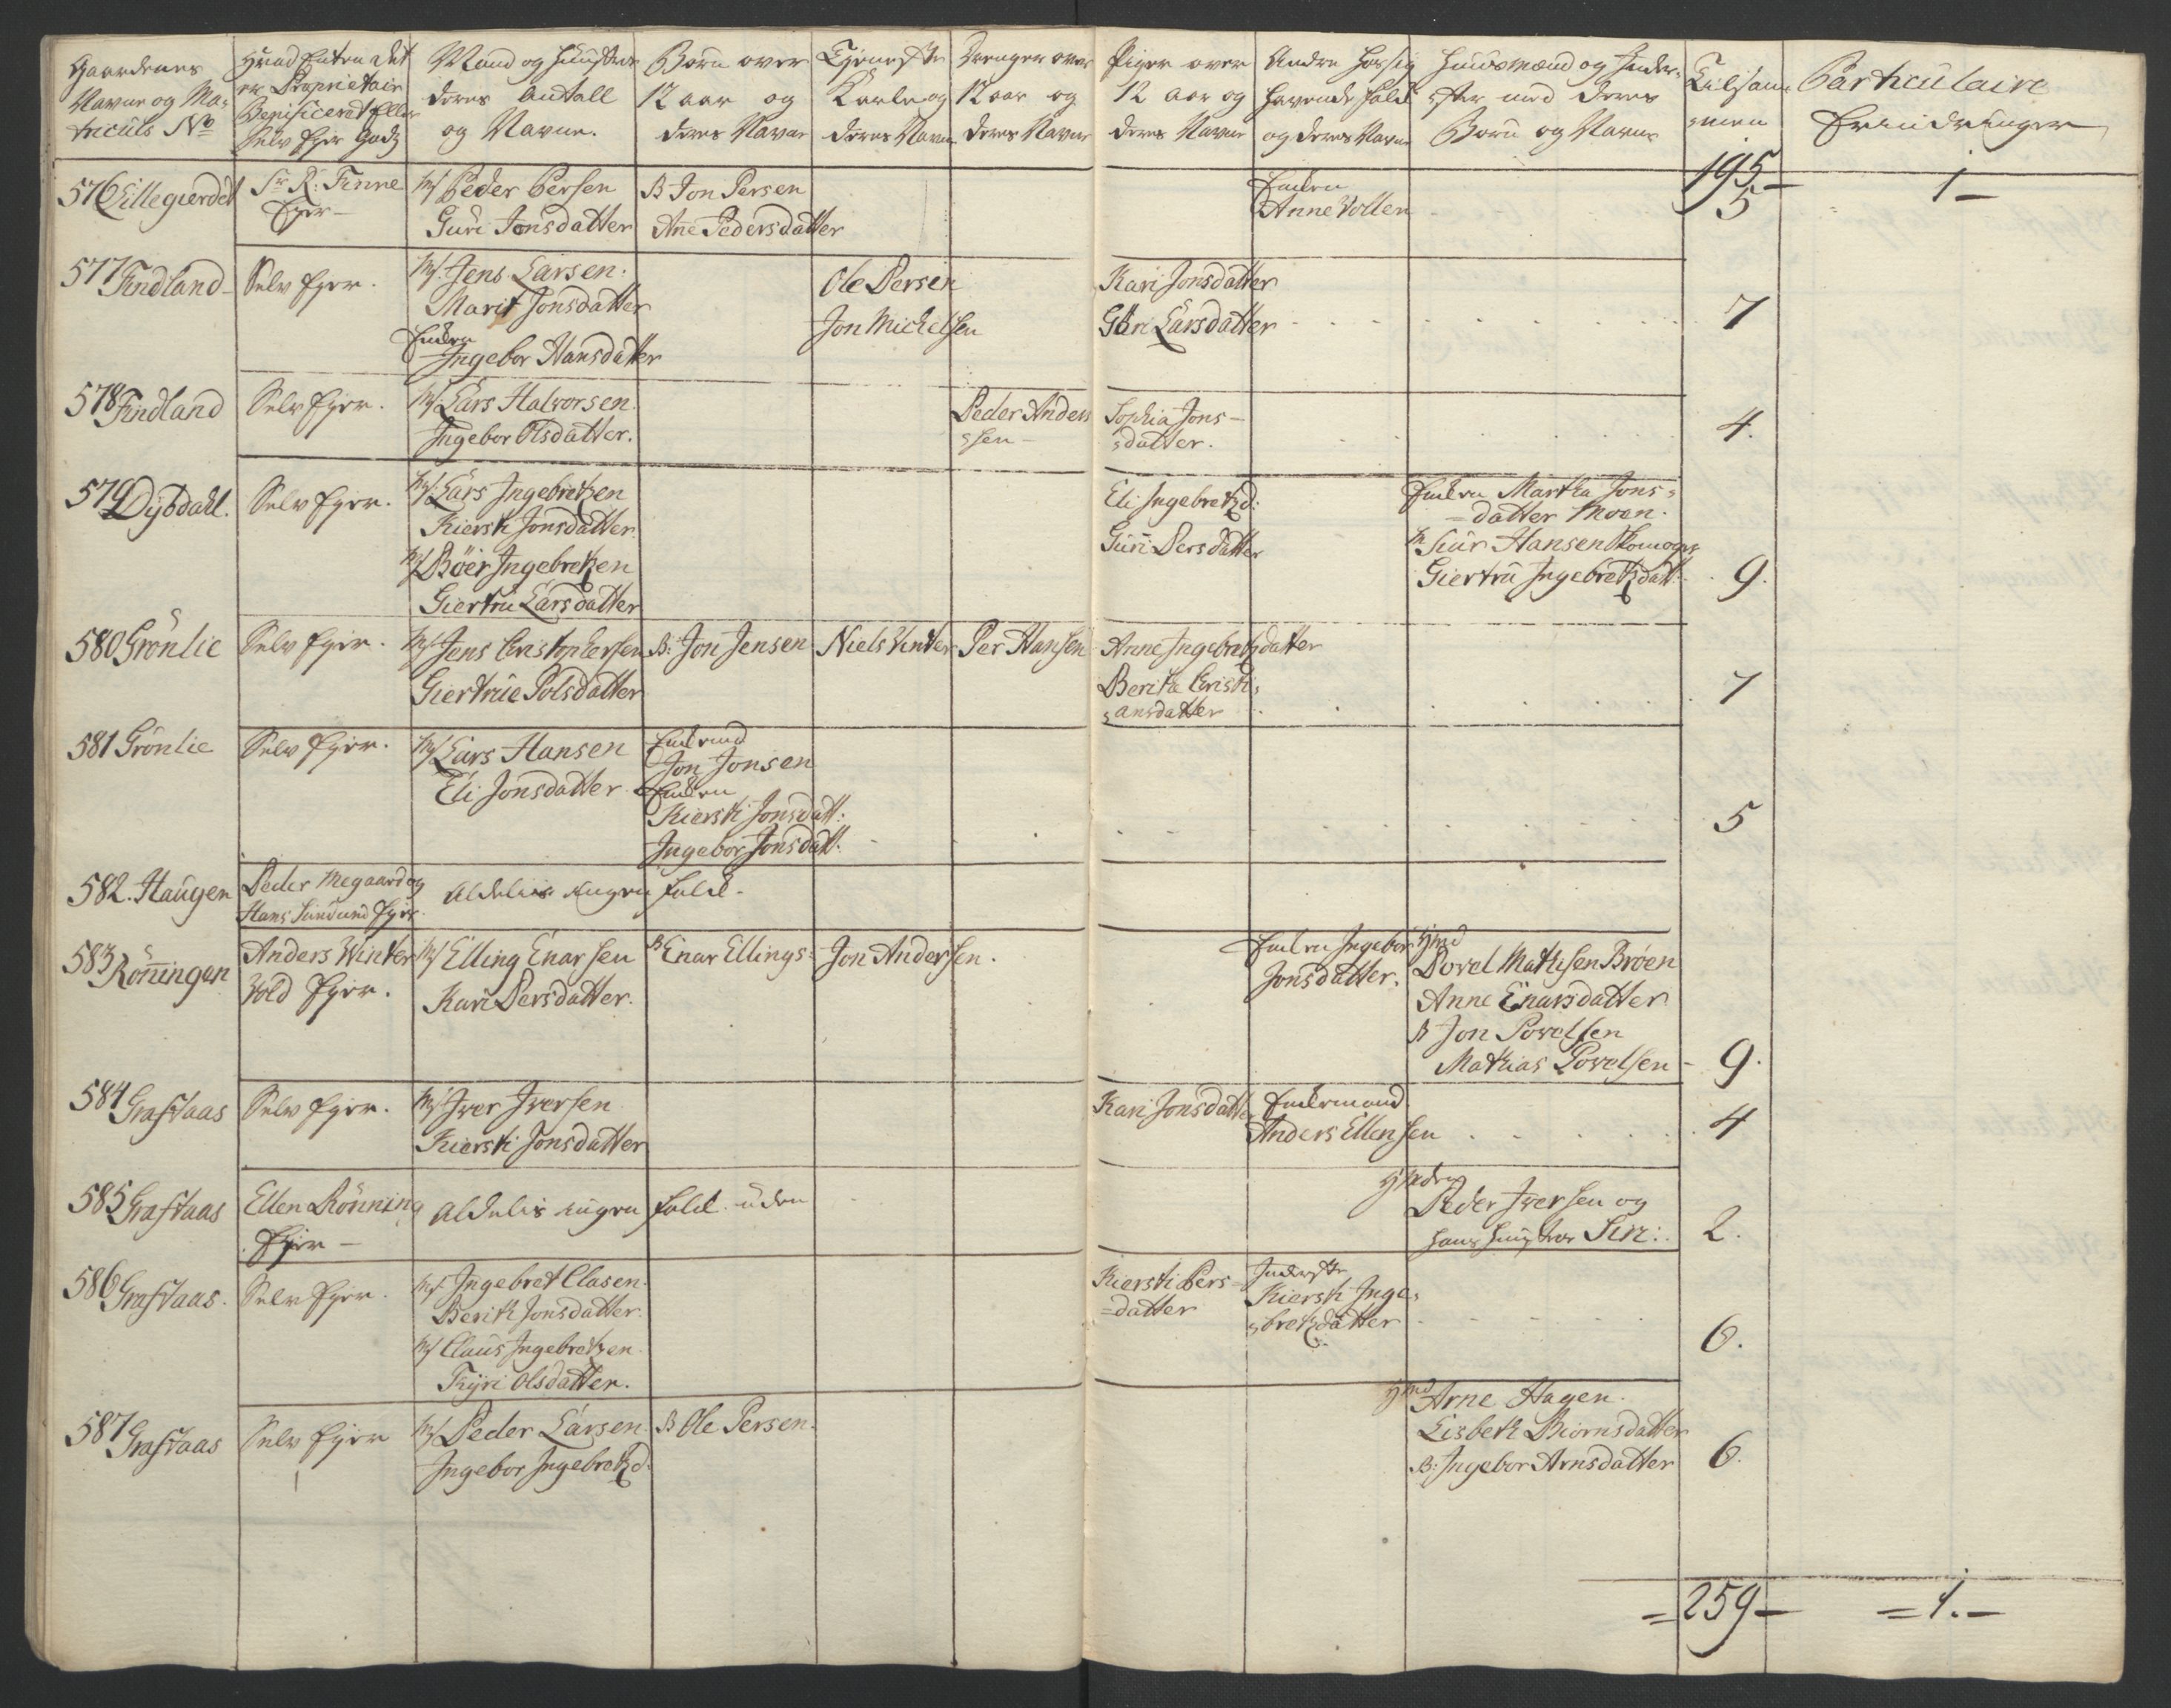 Gaardenes
Navne og Ma-
triculs No
Hvad enten det
er Proprietair
Beneficeret eller
Selv Eyer Gods
Mand og Hustrue
deres Antall
og Navne.
Børn over
12 aar og
deres Navne
Tieneste
Karle og
deres Navne
Drenger over
12 aar og
deres Navne
Piger over
12 aar og
deres Navne
Andre hos sig
havende folk
og deres Navne
Huusmænd og Inder-
ster med deres
Børn og Navne
Tilsam-
men
Particulaire
Erindringer
195 -
1 -
576 Lillegierdet
Sr R: Finne
Eyer -
M/ Peder Persen
Guri Jonsdatter
B Jon Persen
Ane Pedersdatter
Enken
Anne Vollen
5
577 Findland -
Selv Eyer.
M/ Jens Larsen:
Marit Jonsdatter
Enken
Ingebor Hansdatter
Ole Persen
Jon Michelsen
Kari Jonsdatter
Guri Larsdatter
7
578 Findland
Selv Eyer.
M/ Lars Halvorsen
Ingebor Olsdatter.
Peder Anders
=sen -
Sophia Jons-
=datter.
4.
579 Dybdahl.
Selv Eyer.
M/ Lars Ingebretzen
Kiersti Jonsdatter
M/ Böer Ingebretzen
Giertru Larsdatter
Eli Ingebretzd:
Guri Persdatter
Enken Martha Jons=
=datter Moen.
Giertru Ingebretzdatt:
9.
580 Grönlie
Selv Eyer.
M/ Jens Cristophersen
Giertrue Polsdatter
B: Jon Jensen
Niels Vinter
Per Hansen
Anne Ingebretzdatter
Berita Cristi=
=ansdatter
7
581 Grönlie
Selv Eyer.
M/ Lars Hansen
Eli Jonsdatter
Enkemand
Jon Jonsen
Enken
Kiersti Jonsdatt:
Ingebor Jonsdatt:
5
582. Haugen
Peder Megaard og
Hans Sundund Eyer.
Aldeles ingen folk -
583 Rönningen
Anders Winter
Vold Eyer.
M/ Elling Enarsen
Kari Persdatter.
B Enar Ellings:
Jon Andersen.
Enken Ingebor
Jonsdatter.
Hmd
Povel Mathisen Bröen
Anne Enarsdatter
B Jon Povelsen
Mathias Povelsen -
9.
584 Grafstaas
Selv Eyer.
M/ Iver Iversen
Kiersti Jonsdatter
Kari Jonsdatter
Enkemand
Anders Ellensen
4
585 Grafstaas
Ellen Rönning
Eyer -
Aldeles ingen folk uden
Peder Iversen og
hans hustroe Siri:.
2.
586 Grafstaas.
Selv Eyer.
M/ Ingebret Clasen
Berith Jonsdatter
M/ Claus Ingebretzen
Kyri Olsdatter.
Kiersti Pers=
=datter
Inderste
Kiersti Inge=
=bretzdatter
6.
587 Grafstaas
Selv Eyer
M/ Peder Larsen
Ingebor Ingebretzd:
B Ole Persen.
Hmd Arne Hagen.
Lisbeth Biörnsdatter
B: Ingebor Arnsdatter
6.
= 259 -
= 1. -